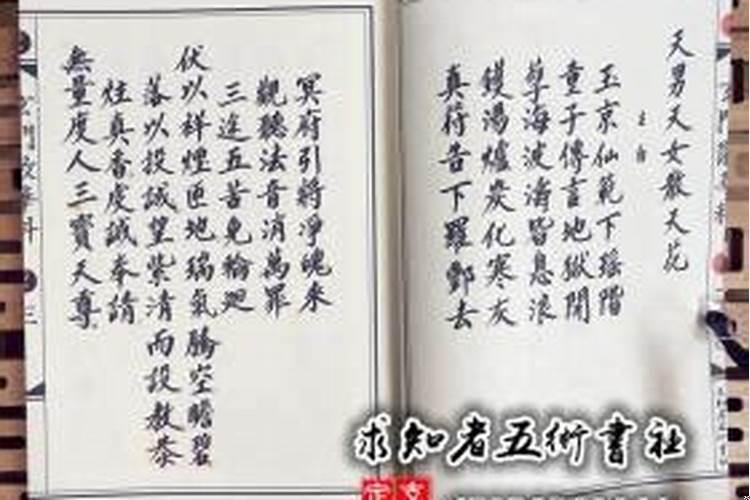 天男天女散天花
玉京仙範下瑶階
童子傳言地獄開
孽海波濤皆息浪
鑊湯爐炭化寒灰
真符告下羅酆去
冥府引將淨魄来
觀聽法音消萬罪
三途五苦免輪廻
伏以祥煙匝地瑞氣騰空瞻碧
落以投誠望紫清而設教恭
炷真香虔誠奉請
無量度人三寶天尊
求知者五術書社